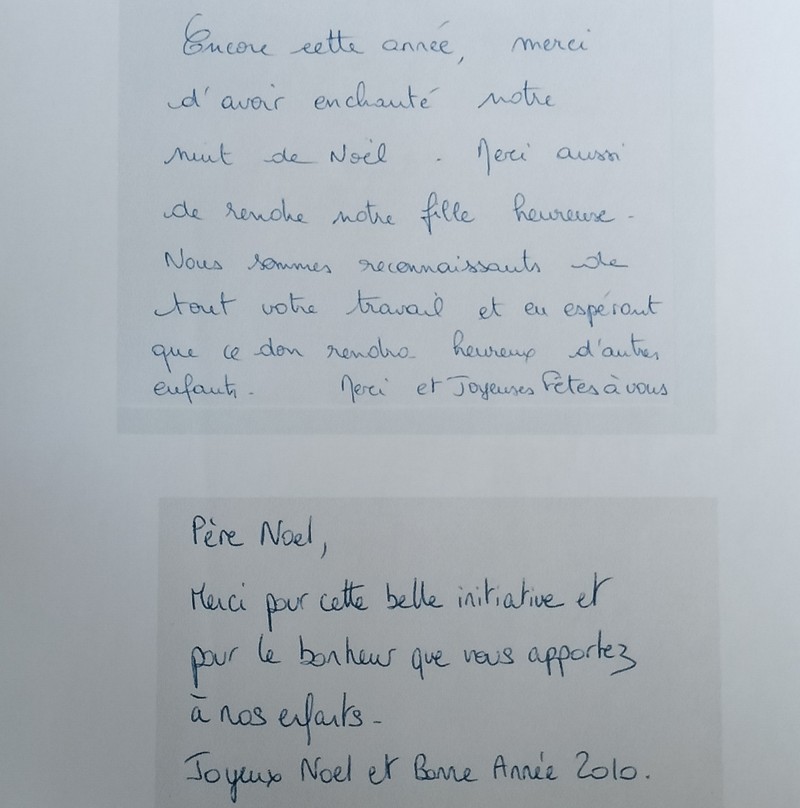 Encore cette année, merci
d'avoir enchanté notre
nuit de Noël. Merci aussi
de rendre notre fille heureuse.
Nous sommes reconnaissants de
tout votre travail et en espérant
que ce don rendra heureux d'autres
enfants. Merci et Joyeuses Fêtes à vous
Père Noel,
Merci pour cette belle initiative et
pour le bonheur que vous apportez
à nos enfants.
Joyeux Noel et Bonne Année 2010.